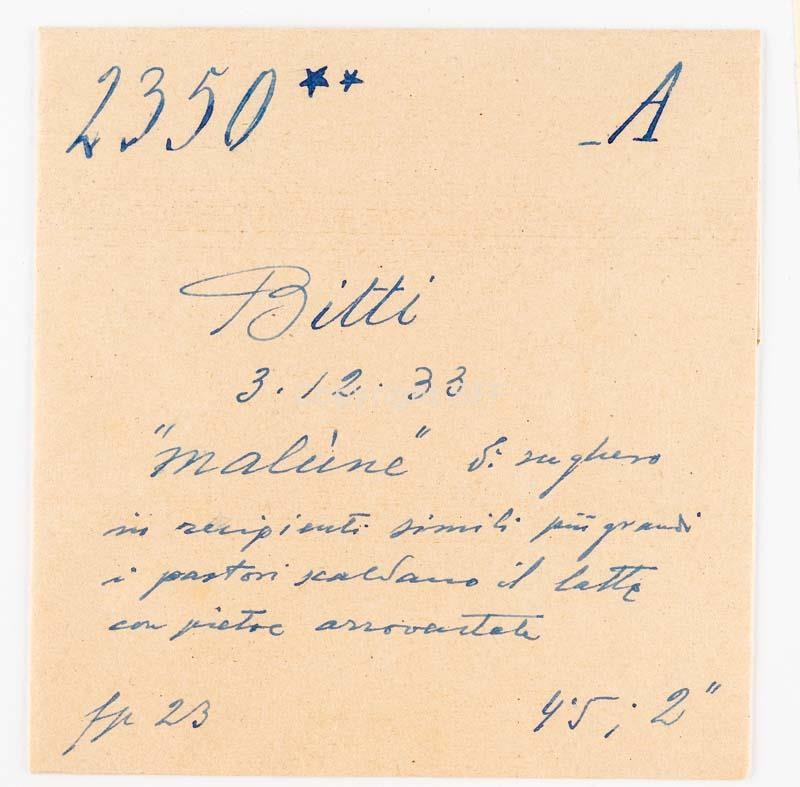 2350 ** - A
Bitti
3.12.33
"malùne" di sughero
in recipienti simili più grandi
i pastori scaldano il latte
con pietre arroventate
fp 23 4.5; 2"